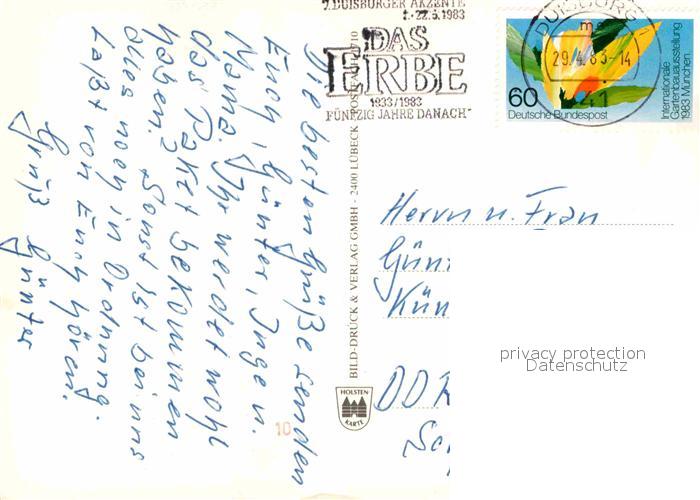 7. DUISBURGER AKZENTE
2.-22.5.1983
DAS
ERBE
1933/1983
FÜNFZIG JAHRE DANACH
DUISBURG
29.4.83-14
41
60
Deutsche Bundespost
Internationale
Gartenbauausstellung
1983 München
Die besten Grüße senden
Euch, Günter, Inge u.
Mama. Ihr werdet wohl
das Paket bekommen
haben? Sonst ist bei uns
alles noch in Ordnung.
Laßt von Euch hören.
Gruß Günter
BILD-DRUCK & VERLAG GMBH - 2400 LÜBECK POSTFACH
HOLSTEN
KARTE
10
Herrn u. Frau
Gün
Kün
DDR
privacy protection
Datenschutz